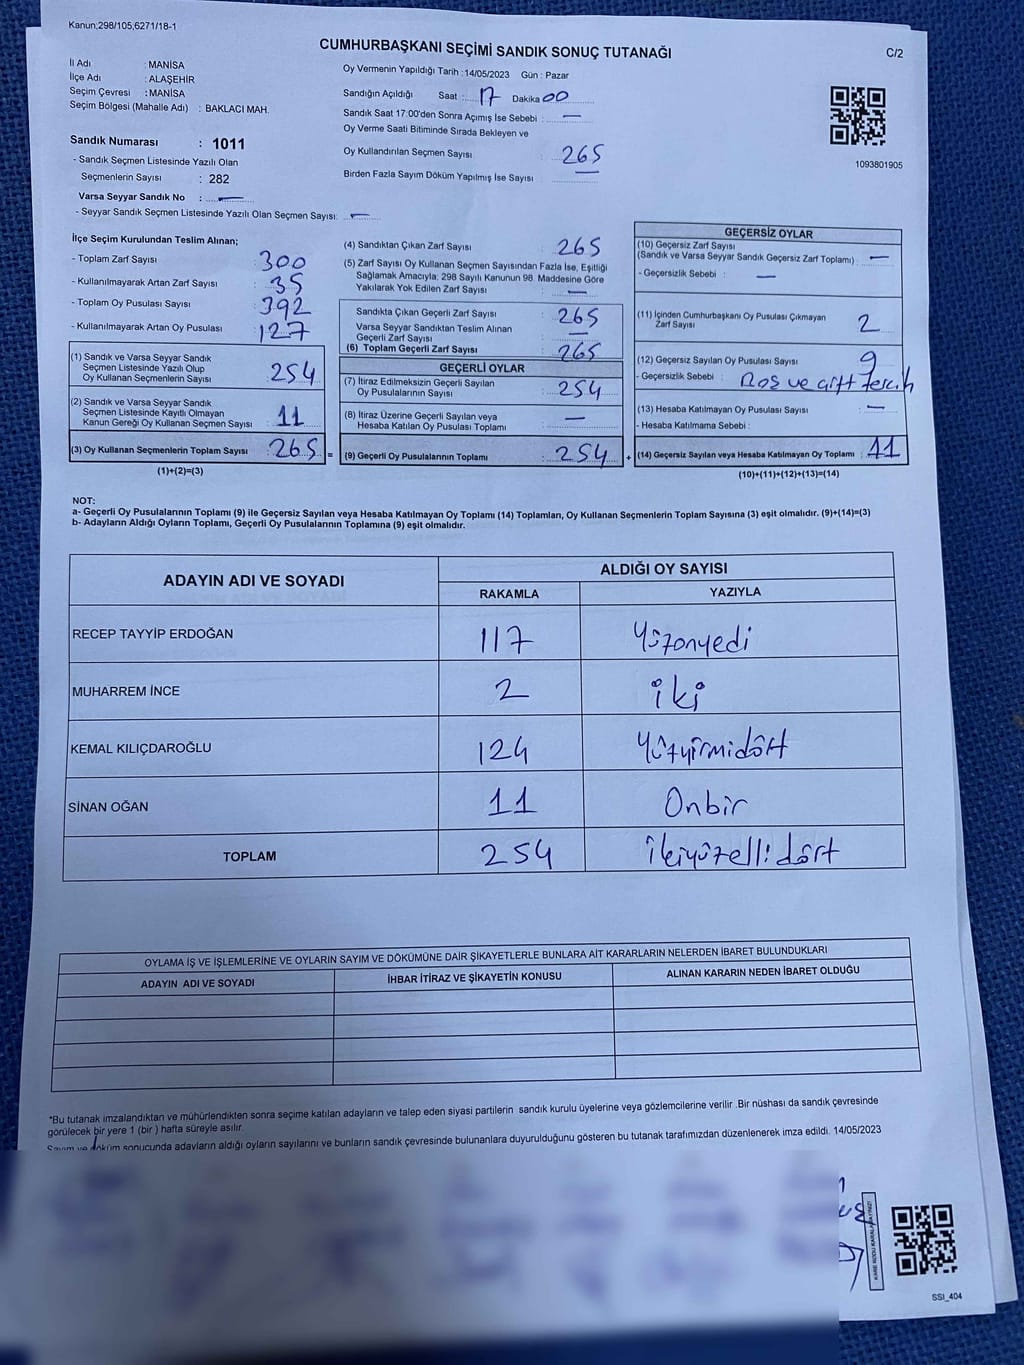 Kanun;298/105;6271/18-1
CUMHURBAŞKANI SEÇİMİ SANDIK SONUÇ TUTANAĞI
C/2
İl Adı : MANİSA
İlçe Adı : ALAŞEHİR
Seçim Çevresi : MANİSA
Seçim Bölgesi (Mahalle Adı) : BAKLACI MAH.
Sandık Numarası : 1011
- Sandık Seçmen Listesinde Yazılı Olan
Seçmenlerin Sayısı : 282
Varsa Seyyar Sandık No : —
- Seyyar Sandık Seçmen Listesinde Yazılı Olan Seçmen Sayısı: —
Oy Vermenin Yapıldığı Tarih :14/05/2023 Gün : Pazar
Sandığın Açıldığı Saat : 17 Dakika 00
Sandık Saat 17:00'den Sonra Açımış İse Sebebi : —
Oy Verme Saati Bitiminde Sırada Bekleyen ve
Oy Kullandırılan Seçmen Sayısı : 265
Birden Fazla Sayım Döküm Yapılmış İse Sayısı : —
1093801905
İlçe Seçim Kurulundan Teslim Alınan;
- Toplam Zarf Sayısı : 300
- Kullanılmayarak Artan Zarf Sayısı : 35
- Toplam Oy Pusulası Sayısı : 392
- Kullanılmayarak Artan Oy Pusulası : 127
(1) Sandık ve Varsa Seyyar Sandık
Seçmen Listesinde Yazılı Olup
Oy Kullanan Seçmenlerin Sayısı : 254
(2) Sandık ve Varsa Seyyar Sandık
Seçmen Listesinde Kayıtlı Olmayan
Kanun Gereği Oy Kullanan Seçmen Sayısı : 11
(3) Oy Kullanan Seçmenlerin Toplam Sayısı : 265 =
(1)+(2)=(3)
(4) Sandıktan Çıkan Zarf Sayısı : 265
(5) Zarf Sayısı Oy Kullanan Seçmen Sayısından Fazla İse, Eşitliği
Sağlamak Amacıyla; 298 Sayılı Kanunun 98. Maddesine Göre
Yakılarak Yok Edilen Zarf Sayısı : —
Sandıkta Çıkan Geçerli Zarf Sayısı : 265
Varsa Seyyar Sandıktan Teslim Alınan
Geçerli Zarf Sayısı : —
(6) Toplam Geçerli Zarf Sayısı : 265
GEÇERLİ OYLAR
(7) İtiraz Edilmeksizin Geçerli Sayılan
Oy Pusulalarının Sayısı : 254
(8) İtiraz Üzerine Geçerli Sayılan veya
Hesaba Katılan Oy Pusulası Toplamı : —
(9) Geçerli Oy Pusulalarının Toplamı : 254 +
GEÇERSİZ OYLAR
(10) Geçersiz Zarf Sayısı
(Sandık ve Varsa Seyyar Sandık Geçersiz Zarf Toplamı) : —
- Geçersizlik Sebebi : —
(11) İçinden Cumhurbaşkanı Oy Pusulası Çıkmayan
Zarf Sayısı : 2
(12) Geçersiz Sayılan Oy Pusulası Sayısı : 9
- Geçersizlik Sebebi : Boş ve çift tercih
(13) Hesaba Katılmayan Oy Pusulası Sayısı : —
- Hesaba Katılmama Sebebi :
(14) Geçersiz Sayılan veya Hesaba Katılmayan Oy Toplamı : 11
(10)+(11)+(12)+(13)=(14)
NOT:
a- Geçerli Oy Pusulalarının Toplamı (9) ile Geçersiz Sayılan veya Hesaba Katılmayan Oy Toplamı (14) Toplamları, Oy Kullanan Seçmenlerin Toplam Sayısına (3) eşit olmalıdır. (9)+(14)=(3)
b- Adayların Aldığı Oyların Toplamı, Geçerli Oy Pusulalarının Toplamına (9) eşit olmalıdır.
ADAYIN ADI VE SOYADI
ALDIĞI OY SAYISI
RAKAMLA YAZIYLA
RECEP TAYYİP ERDOĞAN 117 Yüzonyedi
MUHARREM İNCE 2 iki
KEMAL KILIÇDAROĞLU 124 Yüzyirmidört
SİNAN OĞAN 11 Onbir
TOPLAM 254 ikiyüzellidört
OYLAMA İŞ VE İŞLEMLERİNE VE OYLARIN SAYIM VE DÖKÜMÜNE DAİR ŞİKAYETLERLE BUNLARA AİT KARARLARIN NELERDEN İBARET BULUNDUKLARI
ADAYIN ADI VE SOYADI İHBAR İTİRAZ VE ŞİKAYETİN KONUSU ALINAN KARARIN NEDEN İBARET OLDUĞU
*Bu tutanak imzalandıktan ve mühürlendikten sonra seçime katılan adayların ve talep eden siyasi partilerin sandık kurulu üyelerine veya gözlemcilerine verilir .Bir nüshası da sandık çevresinde
görülecek bir yere 1 (bir ) hafta süreyle asılır.
Sayım ve döküm sonucunda adayların aldığı oyların sayılarını ve bunların sandık çevresinde bulunanlara duyurulduğunu gösteren bu tutanak tarafımızdan düzenlenerek imza edildi. 14/05/2023
SSI_404